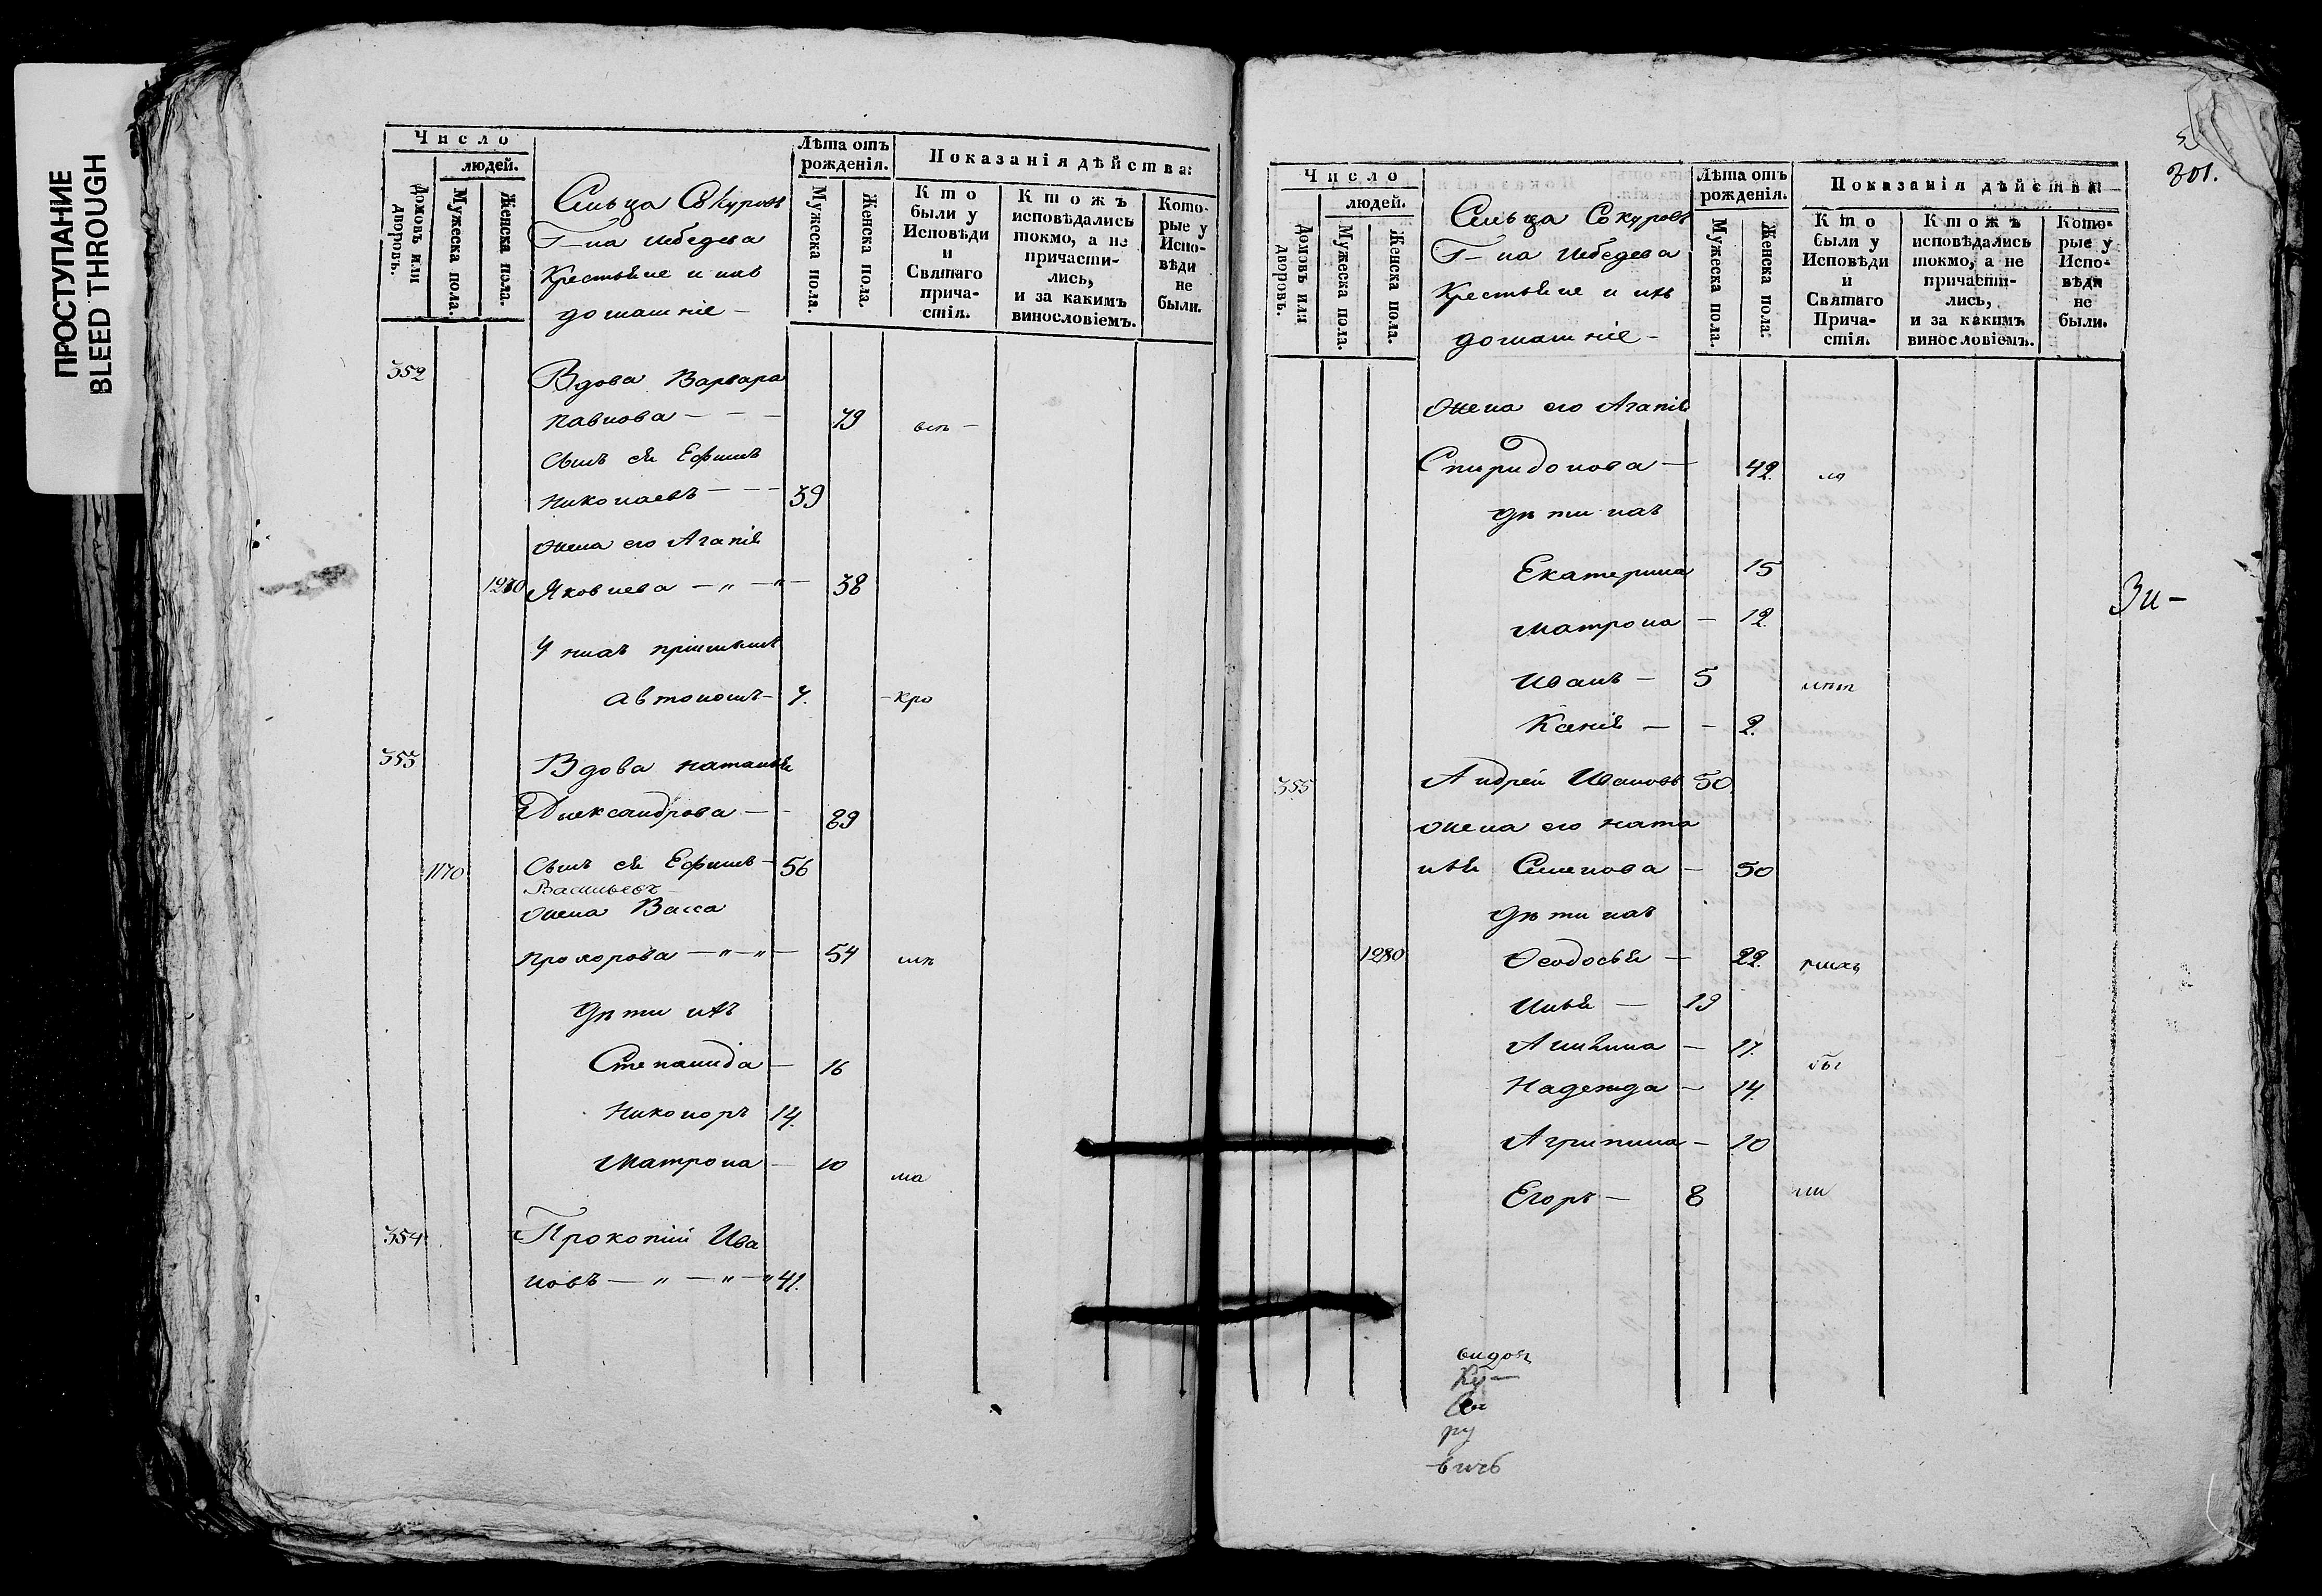 ПРОСТУПАНИЕ
BLEED THROUGH
Число
людей.
Домовъ или дворовъ.
Мужеска пола.
Женска пола.
Сельца Сокуровъ
Г-на Лебедева
Крестьяне и ихъ
домашніе -
Лѣта отъ рожденія.
Мужеска пола.
Женска пола.
Показанія дѣйства:
Кто были у Исповѣди и Святаго причастія.
Ктожъ исповѣдались токмо, а не причастились, и за какимъ винословіемъ.
Которые у Исповѣди не были.
352 Вдова Варвара
Павлова - - - 79
Сынъ ея Ефимъ
Николаевъ - - - 39
Жена его Агапія
1270 Яковлева - „ - „ - 38
У нихъ пріемышъ
Автономъ - 7. - кро
353 Вдова Наталья
Александрова - - 89
1170 Сынъ ея Ефимъ - 56
Васильевъ -
Жена Васса
Прохорова - „ - „ - 54
Дѣти ихъ
Степанида - 16
Никоноръ 14.
Матрона - 10
ма
354 Прокопій Ива
новъ - „ - „ - „ 41.
301.
Число
людей.
Домовъ или дворовъ.
Мужеска пола.
Женска пола.
Сельца Сокуровъ
Г-на Лебедева
Крестьяне и ихъ
домашніе -
Лѣта отъ рожденія.
Мужеска пола.
Женска пола.
Показанія дѣйства:
Кто были у Исповѣди и Святаго Причастія.
Ктожъ исповѣдались токмо, а не причастились, и за какимъ винословіемъ.
Которые у Исповѣди не были.
Жена его Агапія
Спиридонова - 42.
Дѣти ихъ
Екатерина 15
Матрона - 12.
Иванъ - 5
Ксенія - - 2.
355 Андрей Ивановъ 50
Жена его Ната
лья Семенова - 50
Дѣти ихъ
1280 Ѳеодосья - 22.
Илья - 19
Акилина - 17.
Надежда - 14.
Агрипина - 10
Егоръ - 8
бы
ли
Ку -
ру
вичь